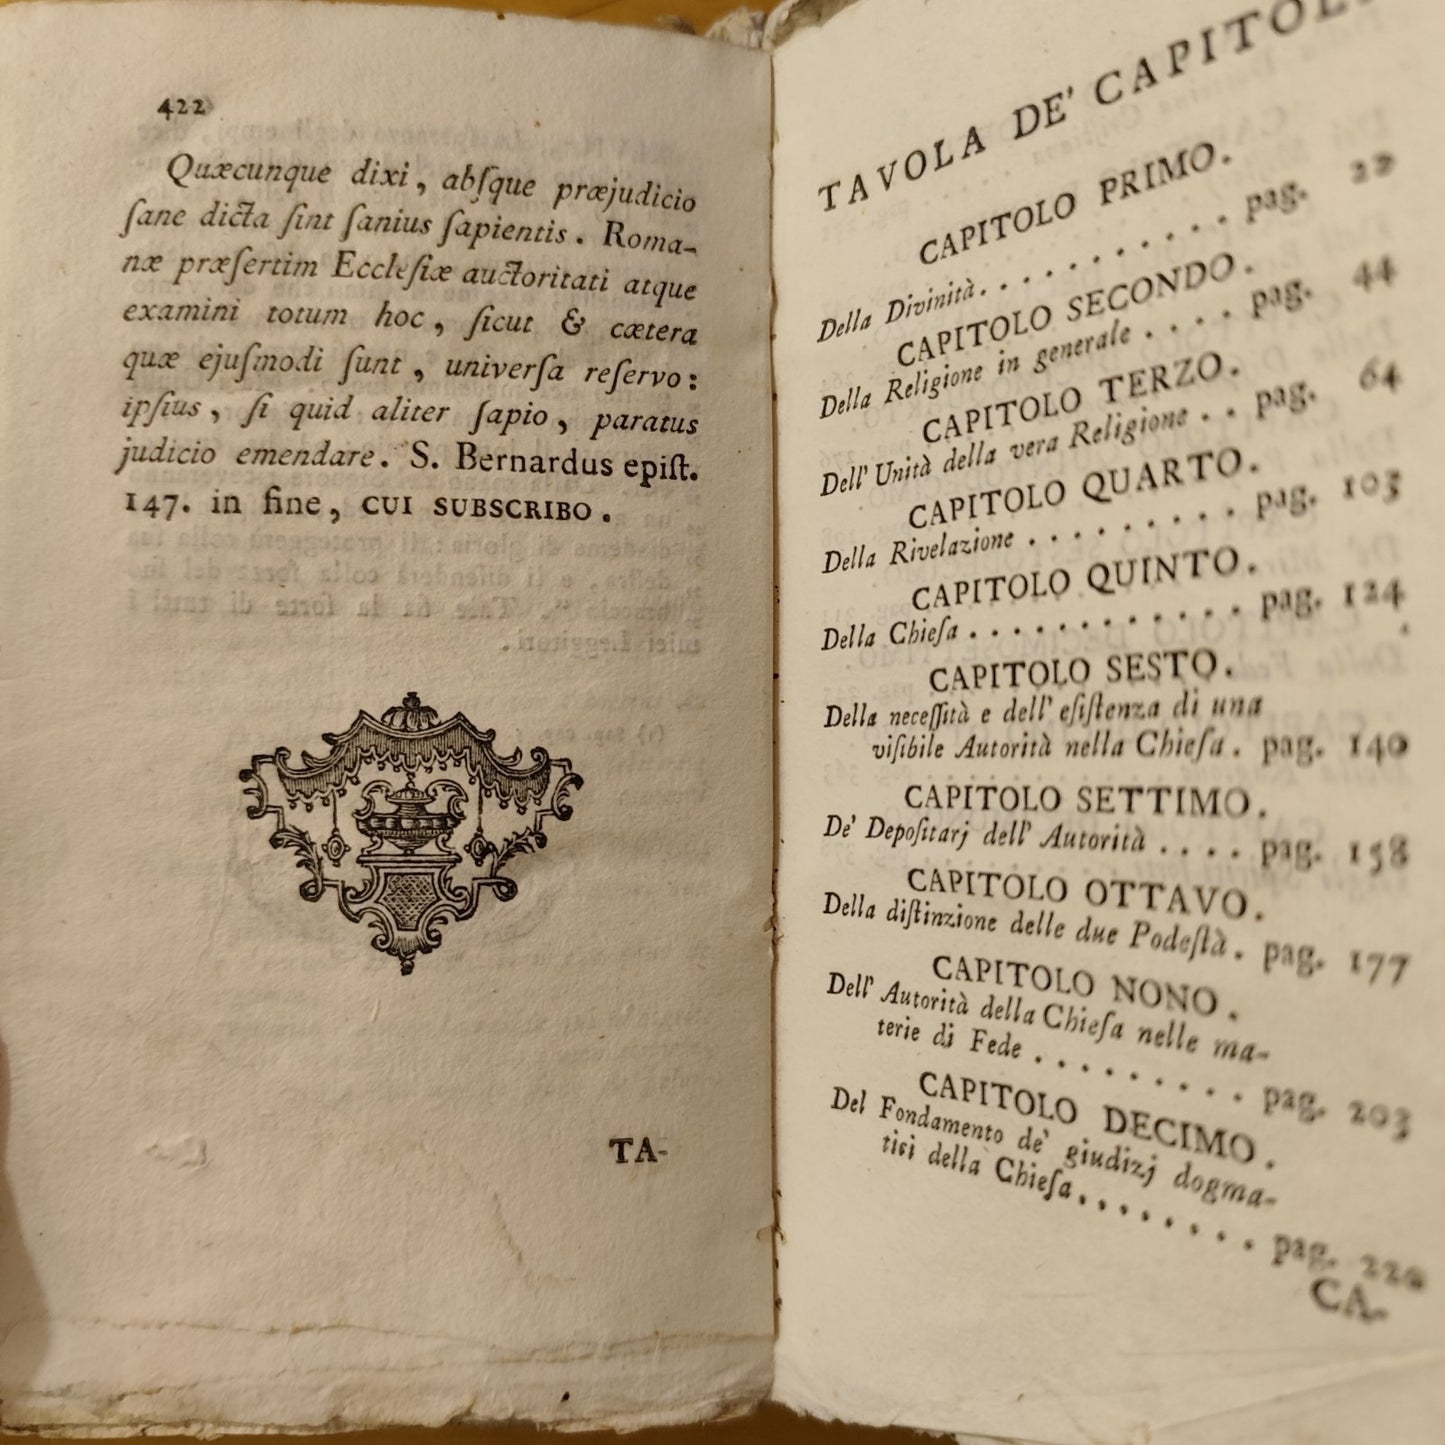 422
Quæcunque dixi, abſque præjudicio
ſane dicta ſint ſanius ſapientis. Roma-
næ præſertim Eccleſiæ auctoritati atque
examini totum hoc, ſicut & cætera
quæ ejuſmodi ſunt, univerſa reſervo:
ipſius, ſi quid aliter ſapio, paratus
judicio emendare. S. Bernardus epiſt.
147. in fine, CUI SUBSCRIBO.
TA-
TAVOLA DE' CAPITOLI
CAPITOLO PRIMO.
Della Divinità. . . . . . . . . . . pag. 22
CAPITOLO SECONDO.
Della Religione in generale . . . . pag. 44
CAPITOLO TERZO.
Dell' Unità della vera Religione . . pag. 64
CAPITOLO QUARTO.
Della Rivelazione . . . . . . . . . pag. 103
CAPITOLO QUINTO.
Della Chieſa . . . . . . . . . . . . pag. 124
CAPITOLO SESTO.
Della neceſſità e dell' eſiſtenza di una
viſibile Autorità nella Chieſa. pag. 140
CAPITOLO SETTIMO.
De' Depoſitarj dell' Autorità . . . . pag. 158
CAPITOLO OTTAVO.
Della diſtinzione delle due Podeſtà. pag. 177
CAPITOLO NONO.
Dell' Autorità della Chieſa nelle ma-
terie di Fede . . . . . . . . . pag. 203
CAPITOLO DECIMO.
Del Fondamento de' giudizj dogma-
tici della Chieſa. . . . . . . . . pag. 220
CA-